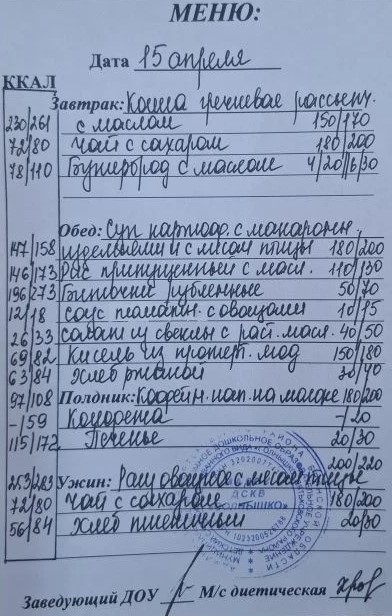 МЕНЮ:
Дата 15 апреля
ККАЛ
Завтрак: Каша гречневая рассыпч.
230/261 с маслом 150/170
72/80 Чай с сахаром 180/200
78/110 Бутерброд с маслом 4/20//6/30
Обед: Суп картоф. с макарон.
147/158 изделиями и с мясом птицы 180/200
146/173 Рис припущенный с масл. 110/130
196/273 Биточки рубленные 50/70
12/18 соус томатн. с овощами 10/15
26/33 салат из свеклы с раст. масл. 40/50
69/82 Кисель из 150/180
63/84 Хлеб ржаной 30/40
97/108 Полдник: Кофейн. нап. на молоке 180/200
-/59 Конфета -/20
115/172 Печенье 20/30
200/220
253/283 Ужин: Рагу овощное с мясом птицы
72/80 Чай с сахаром 180/200
56/84 Хлеб пшеничный 20/30
Заведующий ДОУ М/с диетическая